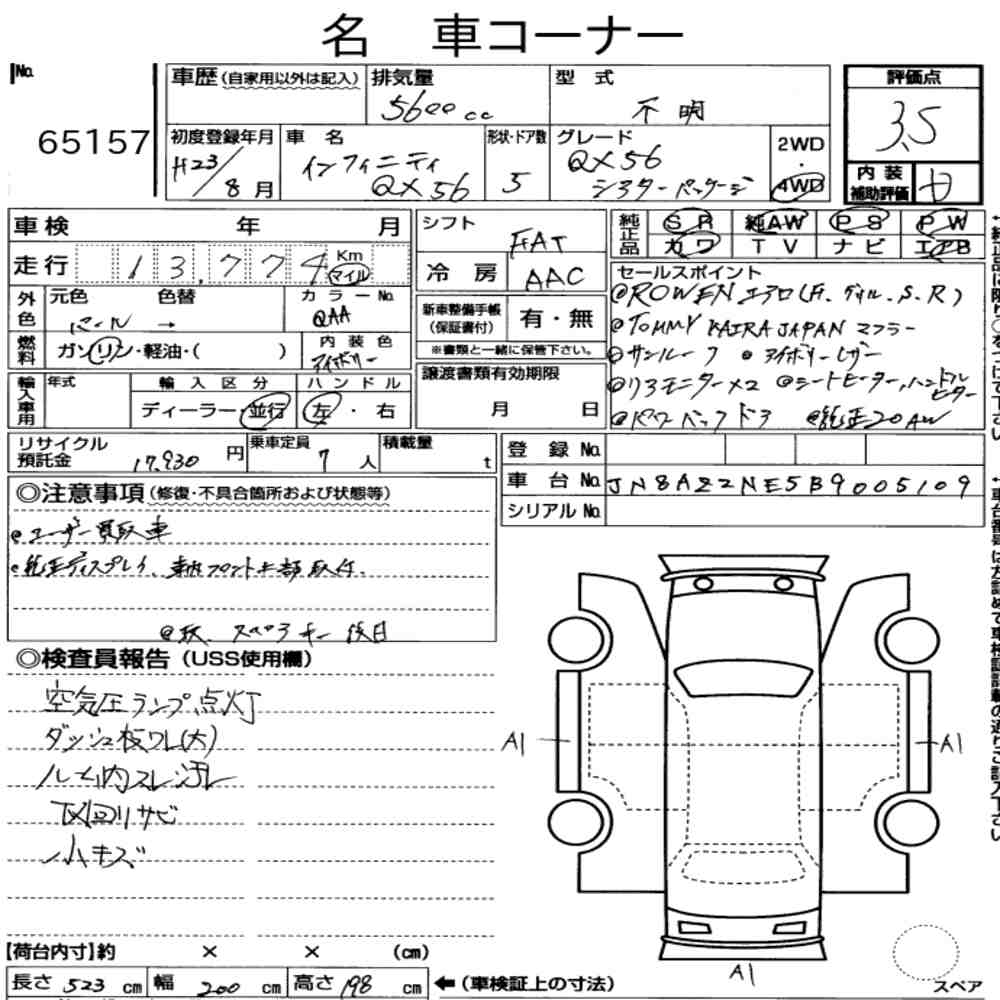 名 車コーナー
No.
65157
車歴 (自家用以外は記入)
排気量
5600cc
型 式
不明
評価点
3.5
初度登録年月
H23/8月
車 名
インフィニティ
QX56
形状・ドア数
5
グレード
QX56
シアターパッケージ
2WD
・
4WD
内 装
補助評価
車検 年 月
シフト
FAT
純正品
SR 純AW PS PW
カワ TV ナビ エアB
走行
13,774
Km
マイル
冷 房
AAC
セールスポイント
◎ROWENエアロ(F.グリル.S.R)
◎TOMMY KAIRA JAPAN マフラー
◎サンルーフ ◎アイボリーレザー
◎リアモニター×2 ◎シートヒーター,ハンドルヒーター
◎パワーバックドア ◎純正20AW
外色
元色 色替
パール →
カラーNo.
QAA
新車整備手帳
(保証書付)
有・無
※書類と一緒に保管下さい。
燃料
ガソリン・軽油・( )
内 装 色
アイボリー
譲渡書類有効期限
月 日
輸入車用
年式
輸 入 区 分
ディーラー・並行
ハ ン ド ル
左・右
リサイクル
預託金
17,930円
乗車定員
7人
積載量
t
登 録 No.
車 台 No.
JN8AZ2NE5B9005109
シリアル No.
◎注意事項 (修復・不具合箇所および状態等)
◎ユーザー買取車
◎純正ディスプレイ、
◎取、スペアキー後日
◎検査員報告 (USS使用欄)
空気圧ランプ点灯
ダッシュ板ワレ(大)
ルーム内スレ汚レ
下回リサビ
小キズ
A1
A1
A1
【荷台内寸】約 × × (cm)
長さ 523 cm 幅 200 cm 高さ 198 cm
←(車検証上の寸法)
スペア